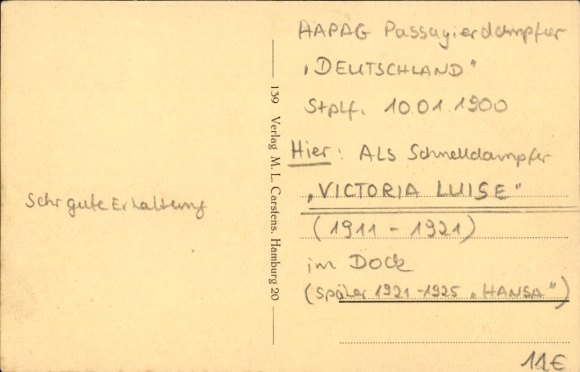 HAPAG Passagierdampfer
"DEUTSCHLAND"
Stplf. 10.01.1900
Hier: Als Schnelldampfer
"VICTORIA LUISE"
(1911 - 1921)
im Dock
(später 1921-1925 "HANSA")
11€
Sehr gute Erhaltung
139 Verlag M. L. Carstens, Hamburg 20